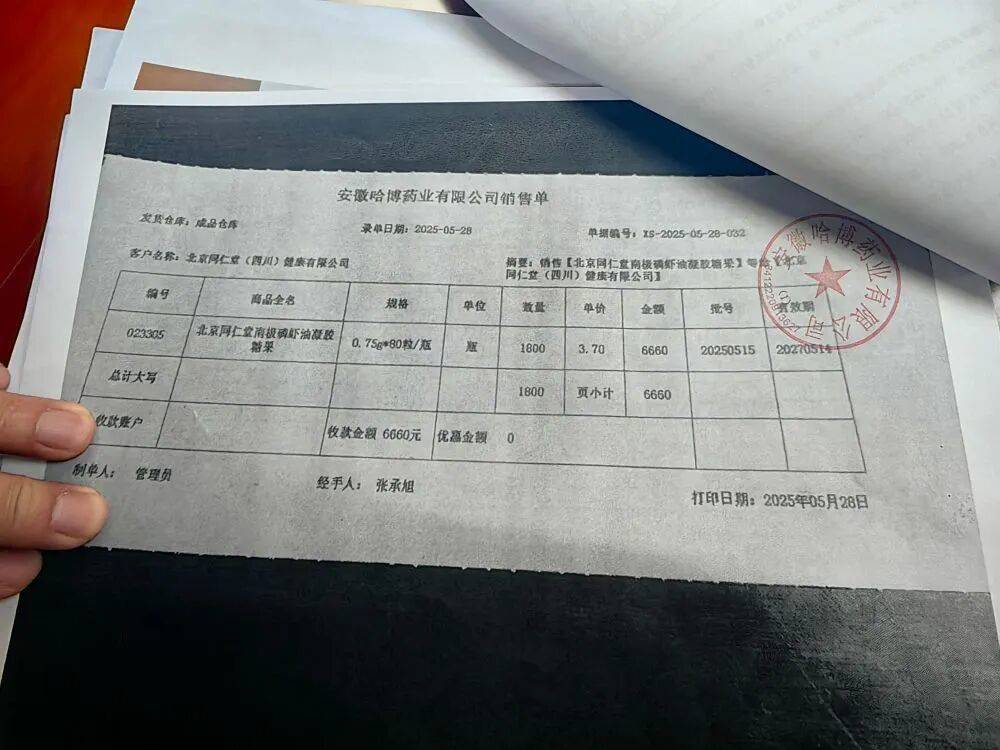 安徽哈博药业有限公司销售单
发货仓库：成品仓库 录单日期：2025-05-28 单据编号：XS-2025-05-28-032
客户名称：北京同仁堂（四川）健康有限公司 摘要：销售【北京同仁堂南极磷虾油凝胶糖果】等
同仁堂（四川）健康有限公司】
编号 商品全名 规格 单位 数量 单价 金额 批号 有效期
023305 北京同仁堂南极磷虾油凝胶 0.75g*80粒/瓶 瓶 1800 3.70 6660 20250515 20270514
糖果
总计大写 1800 页小计 6660
收款账户 收款金额 6660元 优惠金额 0
制单人： 管理员 经手人： 张承旭 打印日期：2025年05月28日
安徽哈博药业有限公司
(1)